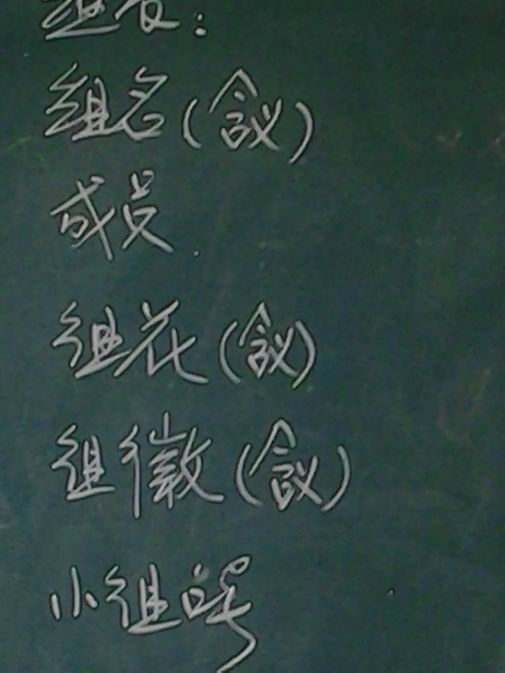 组长：
组名（含义）
成员
组花（含义）
组徽（含义）
小组口号